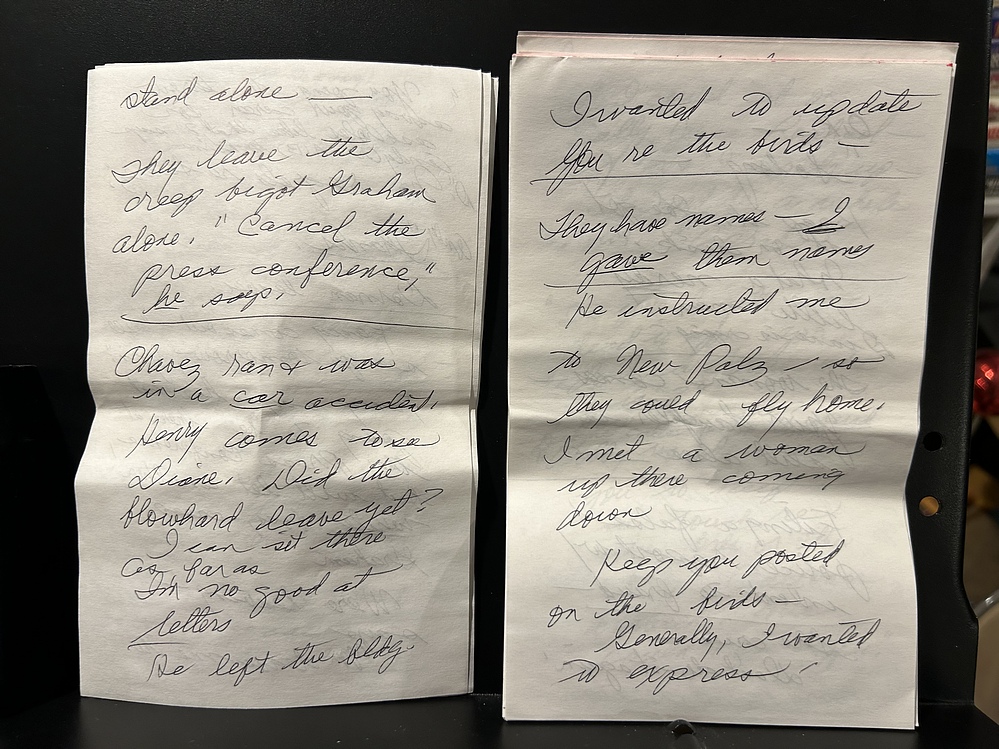 stand alone —
They leave the
creep bigot Graham
alone. "Cancel the
press conference,"
he says.
Chavez ran & was
in a car accident.
Henry comes to see
Diane. Did the
blowhard leave yet?
I can sit there
as far as
I'm no good at
letters
He left the bldg.
I wanted to update
you re the birds —
They have names — I
gave them names
He instructed me
to New Palz, so
they could fly home.
I met a woman
up there coming
down
Keep you posted
on the birds —
Generally, I wanted
to express